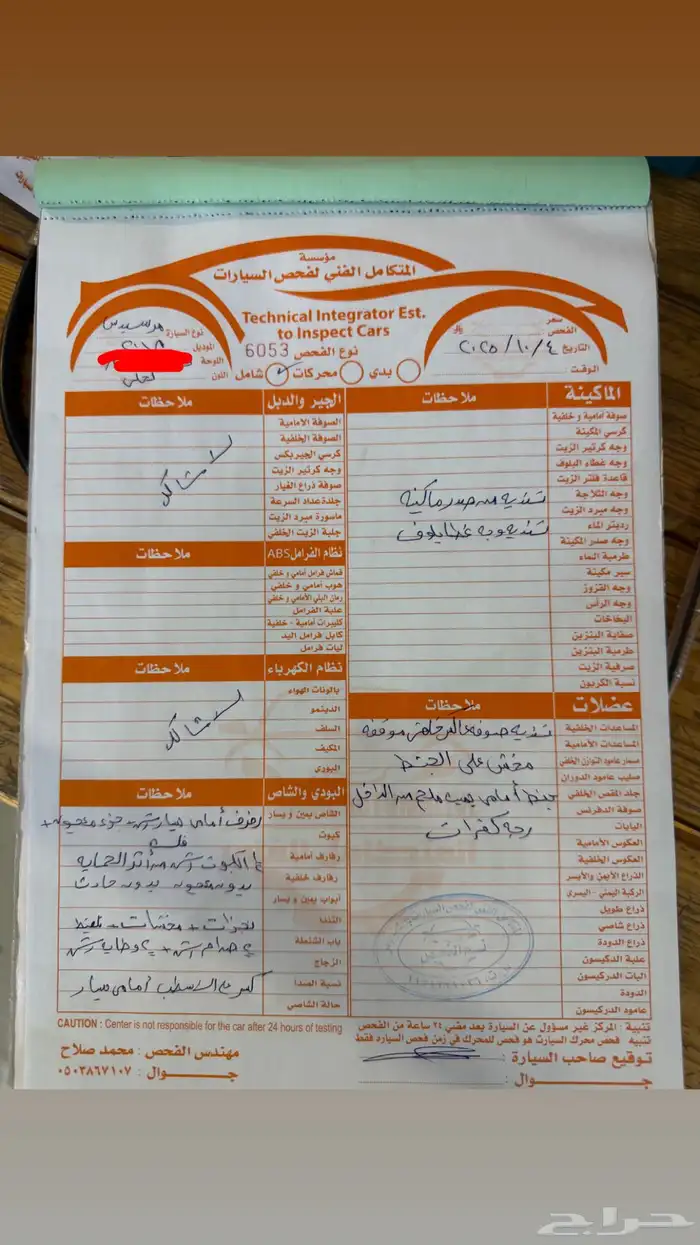 مؤسسة
المتكامل الفني لفحص السيارات
Technical Integrator Est.
to Inspect Cars
نوع الفحص 6053
بدي
محركات
شامل
سعر الفحص
التاريخ ٢٠٢٥/١٠/٤
الوقت:
نوع السيارة مرسيدس
الموديل ٢٠١٨
اللوحة
اللون كحلي
الماكينة
ملاحظات
صوفة أمامية و خلفية
كرسي المكينة
وجه كرتير الزيت
وجه غطاء البلوف
قاعدة فلتر الزيت
وجه الثلاجة
وجه مبرد الزيت
رديتر الماء
وجه صدر المكينة
طرمبة الماء
سير مكينة
وجه القزوز
وجه الرأس
البخاخات
صفاية البنزين
طرمبة البنزين
صرفية الزيت
نسبة الكربون
تنديه من صدر ماكينه
تنديه وجه غطا بلوف
عضلات
ملاحظات
المساعدات الخلفية
المساعدات الأمامية
مسمار عامود التوازن الخلفي
صليب عامود الدوران
جلد المقص الخلفي
صوفة الدفرنس
اليايات
العكوس الأمامية
العكوس الخلفية
الذراع الأيمن والأيسر
الركبة اليمنى - اليسرى
ذراع طويل
ذراع شاصي
ذراع الدودة
علبة الدكسيون
البات الدركسيون
الدودة
عامود الدركسيون
جنط أمامي يمين ملحم من الداخل
رجه كفرات
الجير والدبل
ملاحظات
الصوفة الامامية
الصوفة الخلفية
كرسي الجيربكس
وجه كرتير الزيت
صوفة ذراع الغيار
جلدة عداد السرعة
ماسورة مبرد الزيت
جلبة الزيت الخلفي
نظام الفرامل ABS
ملاحظات
قماش فرامل أمامي و خلفي
هوب أمامي و خلفي
رمان البلي الأمامي و خلفي
علبة الفرامل
كليبرات أمامية - خلفية
كابل فرامل اليد
ليات فرامل
نظام الكهرباء
ملاحظات
بالونات الهواء
الدينمو
السلف
المكيف
البوري
البودي والشاص
ملاحظات
الشاص يمين و يسار
كبوت
رفارف أمامية
رفارف خلفية
أبواب يمين و يسار
التندا
باب الشنطة
الزجاج
نسبة الصدا
حالة الشاصي
رفرف أمامي يسار رش + جزء معجون +
الكبوت رش من أثر الحمايه
بدون معجون بدون حادث
CAUTION : Center is not responsible for the car after 24 hours of testing
تنبية : المركز غير مسؤول عن السيارة بعد مضي ٢٤ ساعة من الفحص
تنبيه فحص محرك السيارت هو فحص للمحرك في زمن فحص السياره فقط
مهندس الفحص : محمد صلاح
جــوال : ٠٥٠٣٨٦٧١٠٧
توقيع صاحب السيارة :
جــوال :
حراج